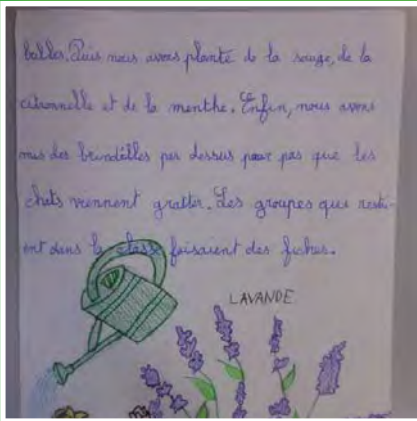 balles. Puis nous avons planté de la sauge, de la
citronnelle et de la menthe. Enfin, nous avons
mis des brindilles par dessus pour pas que les
chats viennent gratter. Les groupes qui restai-
ent dans la classe faisaient des fiches.
LAVANDE